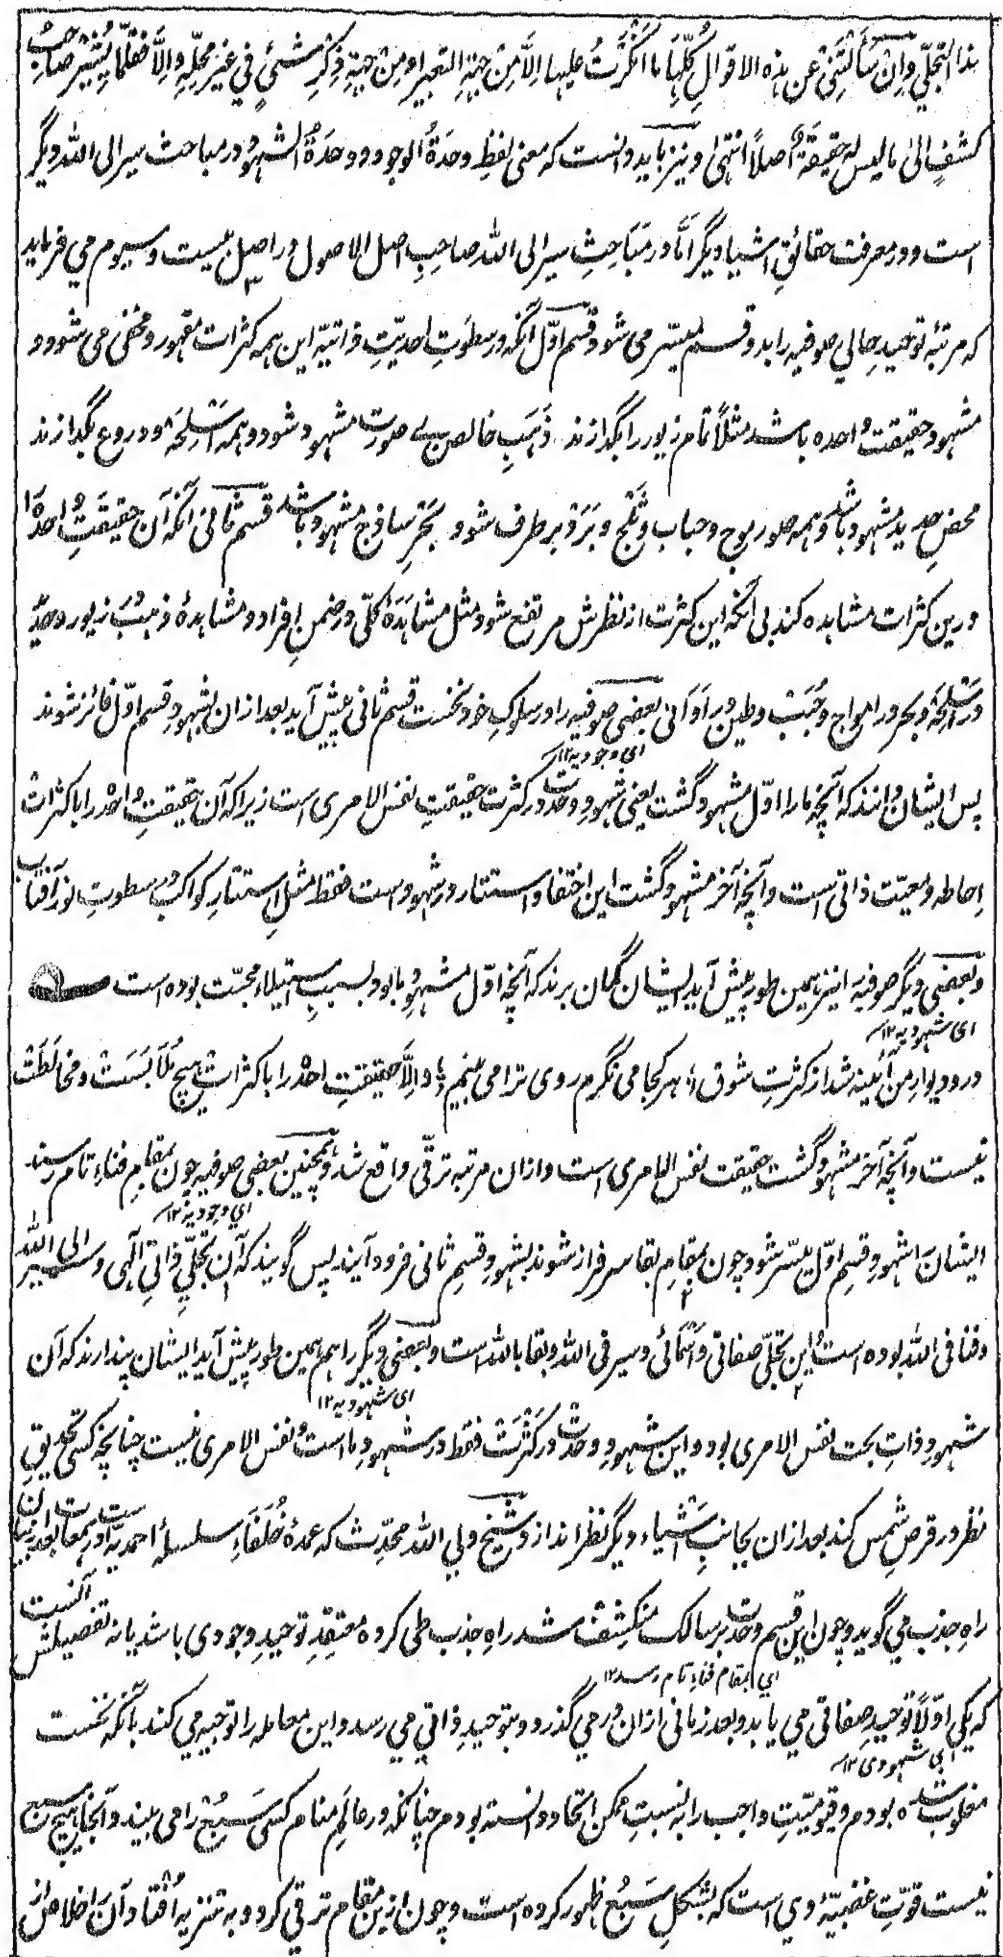 هذا التجلّي وان سألتنی عن هذه الاقوال کلّها ما انکرتُ علیها الّا من جهة التعبیر او من جهة ذکر شئٍ فی غیر محلّه والّا فقلّما یُشیر صاحب
کشفٍ الی ما لیس له حقیقةٌ اصلاً انتهی و نیز باید دانست که معنی لفظ وحدةُ الوجود و وحدةُ الشهود در مباحث سیر الی الله دیگر
است و در معرفت حقائقِ اشیا دیگر امّا در مباحثِ سیر الی الله صاحبِ اصل الاصول در اصیل بیست و سیوم می فرماید
که مرتبهٔ توحیدِ حالی صوفیه را بدو قسم میسّر می شود قسم اوّل آنکه در سطوتِ احدیّتِ ذاتیّه این همه کثرات مقهور و مختفی می شود و
مشهود حقیقتِ واحده باشد مثلاً تمام زیور را بگدازند ذَهَبِ خالص بے صورت مشهود شود و همه اَسْلِحَه و دروع بگدازند
محض حدید مشهود باشد و همه صور موج و حباب و ثَلْج و بَرَد برطرف شود بَحْرِ ساذج مشهود باشد قسم ثانی آنکه آن حقیقتِ واحده را
درین کثرات مشاهده کند بی آنکه این کثرت از نظرش مرتفع شود مثل مشاهَدَهٔ کلّی در ضمن افراد و مشاهدهٔ ذهب در زیور و حدید
در اَسْلِحَه و بحر در امواج و حُبَب و طین در اَوَانی بعضی صوفیه را در سلوکِ خود نخست قسم ثانی پیش آید بعد ازان بشهود قسم اوّل فائز شوند
ای وجودیه ۱۲
پس ایشان دانند که آنچه ما را اوّل مشهود گشت یعنی شهودِ وحدت در کثرت حقیقتِ نفس الامری است زیرا که آن حقیقتِ واحده را با کثرات
احاطه و معیّت ذاتی است و آنچه آخر مشهود گشت این اختفا و استتار در شهود است فقط مثلِ استتارِ کواکب در سطوتِ نورِ آفتاب
و بعضی دیگر صوفیه را نیز همین طور پیش آید ایشان گمان برند که آنچه اوّل مشهودِ ما بود بسببِ استیلاءِ محبّت بوده است
ای شهودیه ۱۲
در و دیوارِ من آئینه شد از کثرتِ شوق ؛ هر کجا می نگرم روی ترا می بینم ؛ والّا حقیقتِ احد را با کثرات هیچ مُلابَسَت و مخالَطَت
نیست و آنچه آخر مشهود گشت حقیقت نفس الامری است و ازان مرتبه ترقّی واقع شد و همچنین بعضی صوفیه چون بمقامِ فناءِ تام رسند
ای وجودیه ۱۲
ایشان را شهودِ قسم اوّل میسّر شود چون بمقامِ بقا سرفراز شوند بشهودِ قسمِ ثانی فرود آیند پس گویند که آن تجلّیِ ذاتیِ الٰهی و سیر الی الله
و فنا فی الله بوده است و این تجلّی صفاتی و اَسْمائی و سیر فی الله و بقا بالله است و بعضی دیگر را هم همین طور پیش آید ایشان پندارند که آن
ای شهودیه ۱۲
شهودِ ذاتِ بحت نفس الامری بود و این شهودِ وحدت در کَثْرَت فقط در شهودِ ما است و نفس الامری نیست چنانچه کسی تحدیقِ
نظر در قرصِ شمس کند بعد ازان بجانبِ اَشْیاء دیگر نظر اندازد و شیخ ولی الله محدّث که عمدهٔ خُلَفاءِ سلسلهٔ احمدیّه است در همعات بعد از بیان
راهِ جذب می گوید و چون این قسم وحدت بر سالک منکشف شد راهِ جذب طی کرده معتقدِ توحیدِ وجودی باشد یا نه تفصیلش آنست
ای بمقام فناءِ تام رسد ۱۲
که یکی اوّلاً توحیدِ صفاتی می یابد و بعد زمانی ازان درمی گذرد و بتوحیدِ ذاتی می رسد و این معامله را توجیه می کند بآنکه نخست
ای شهودی ۱۲
مغلوب شده بودم و قیومیّتِ واجب را به نسبتِ ممکن اتّحاد دانسته بودم چنانکه در عالَمِ منام کسی سَبُع را می بیند و آنجا هیچ سبع
نیست قوّتِ غضبیّهٔ وی است که بشکلِ سَبُع ظهور کرده است و چون ازین مقام ترقی کرد و به تنزیه اُفتاد آن را خلاص از